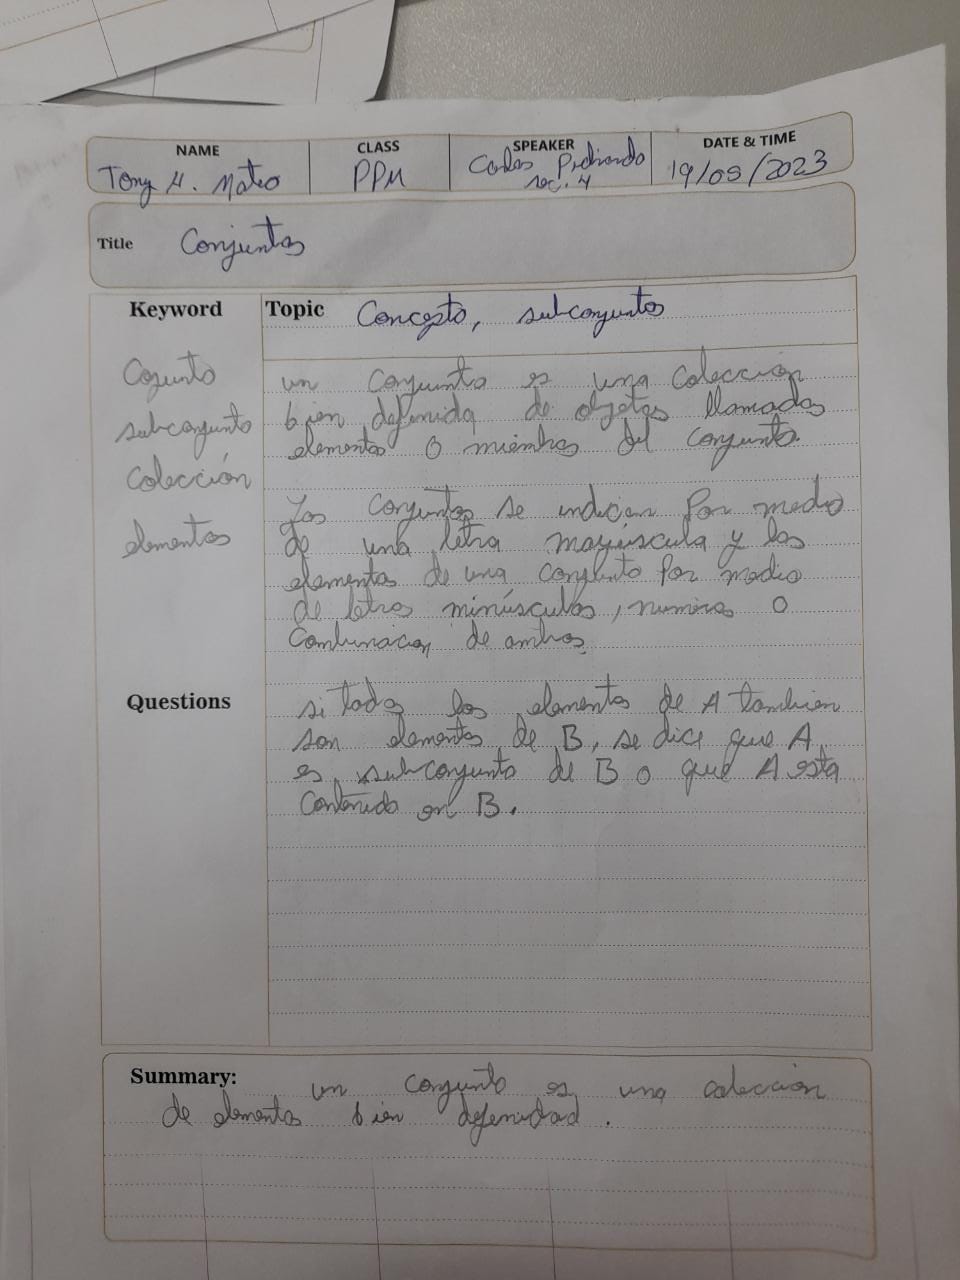 NAME CLASS SPEAKER DATE & TIME
Tony H. Mateo PPM Carlos sec. 4 19/09/2023
Title Conjuntos
Keyword Topic Concepto, subconjuntos
Cojunto
subconjunto
Colección
elementos
un conjunto es una colección
bien definida de objetos llamados
elementos o miembros del conjunto.
Los conjuntos se indican por medio
de una letra mayúscula y los
elementos de una conjunto por medio
de letras minúsculas, numeros o
Combinacion de ambos.
Questions
si todos los elementos de A tambien
son elementos de B, se dice que A
es subconjunto de B o que A esta
Contenido en B.
Summary: un conjunto es una colección
de elementos bien defenidad.